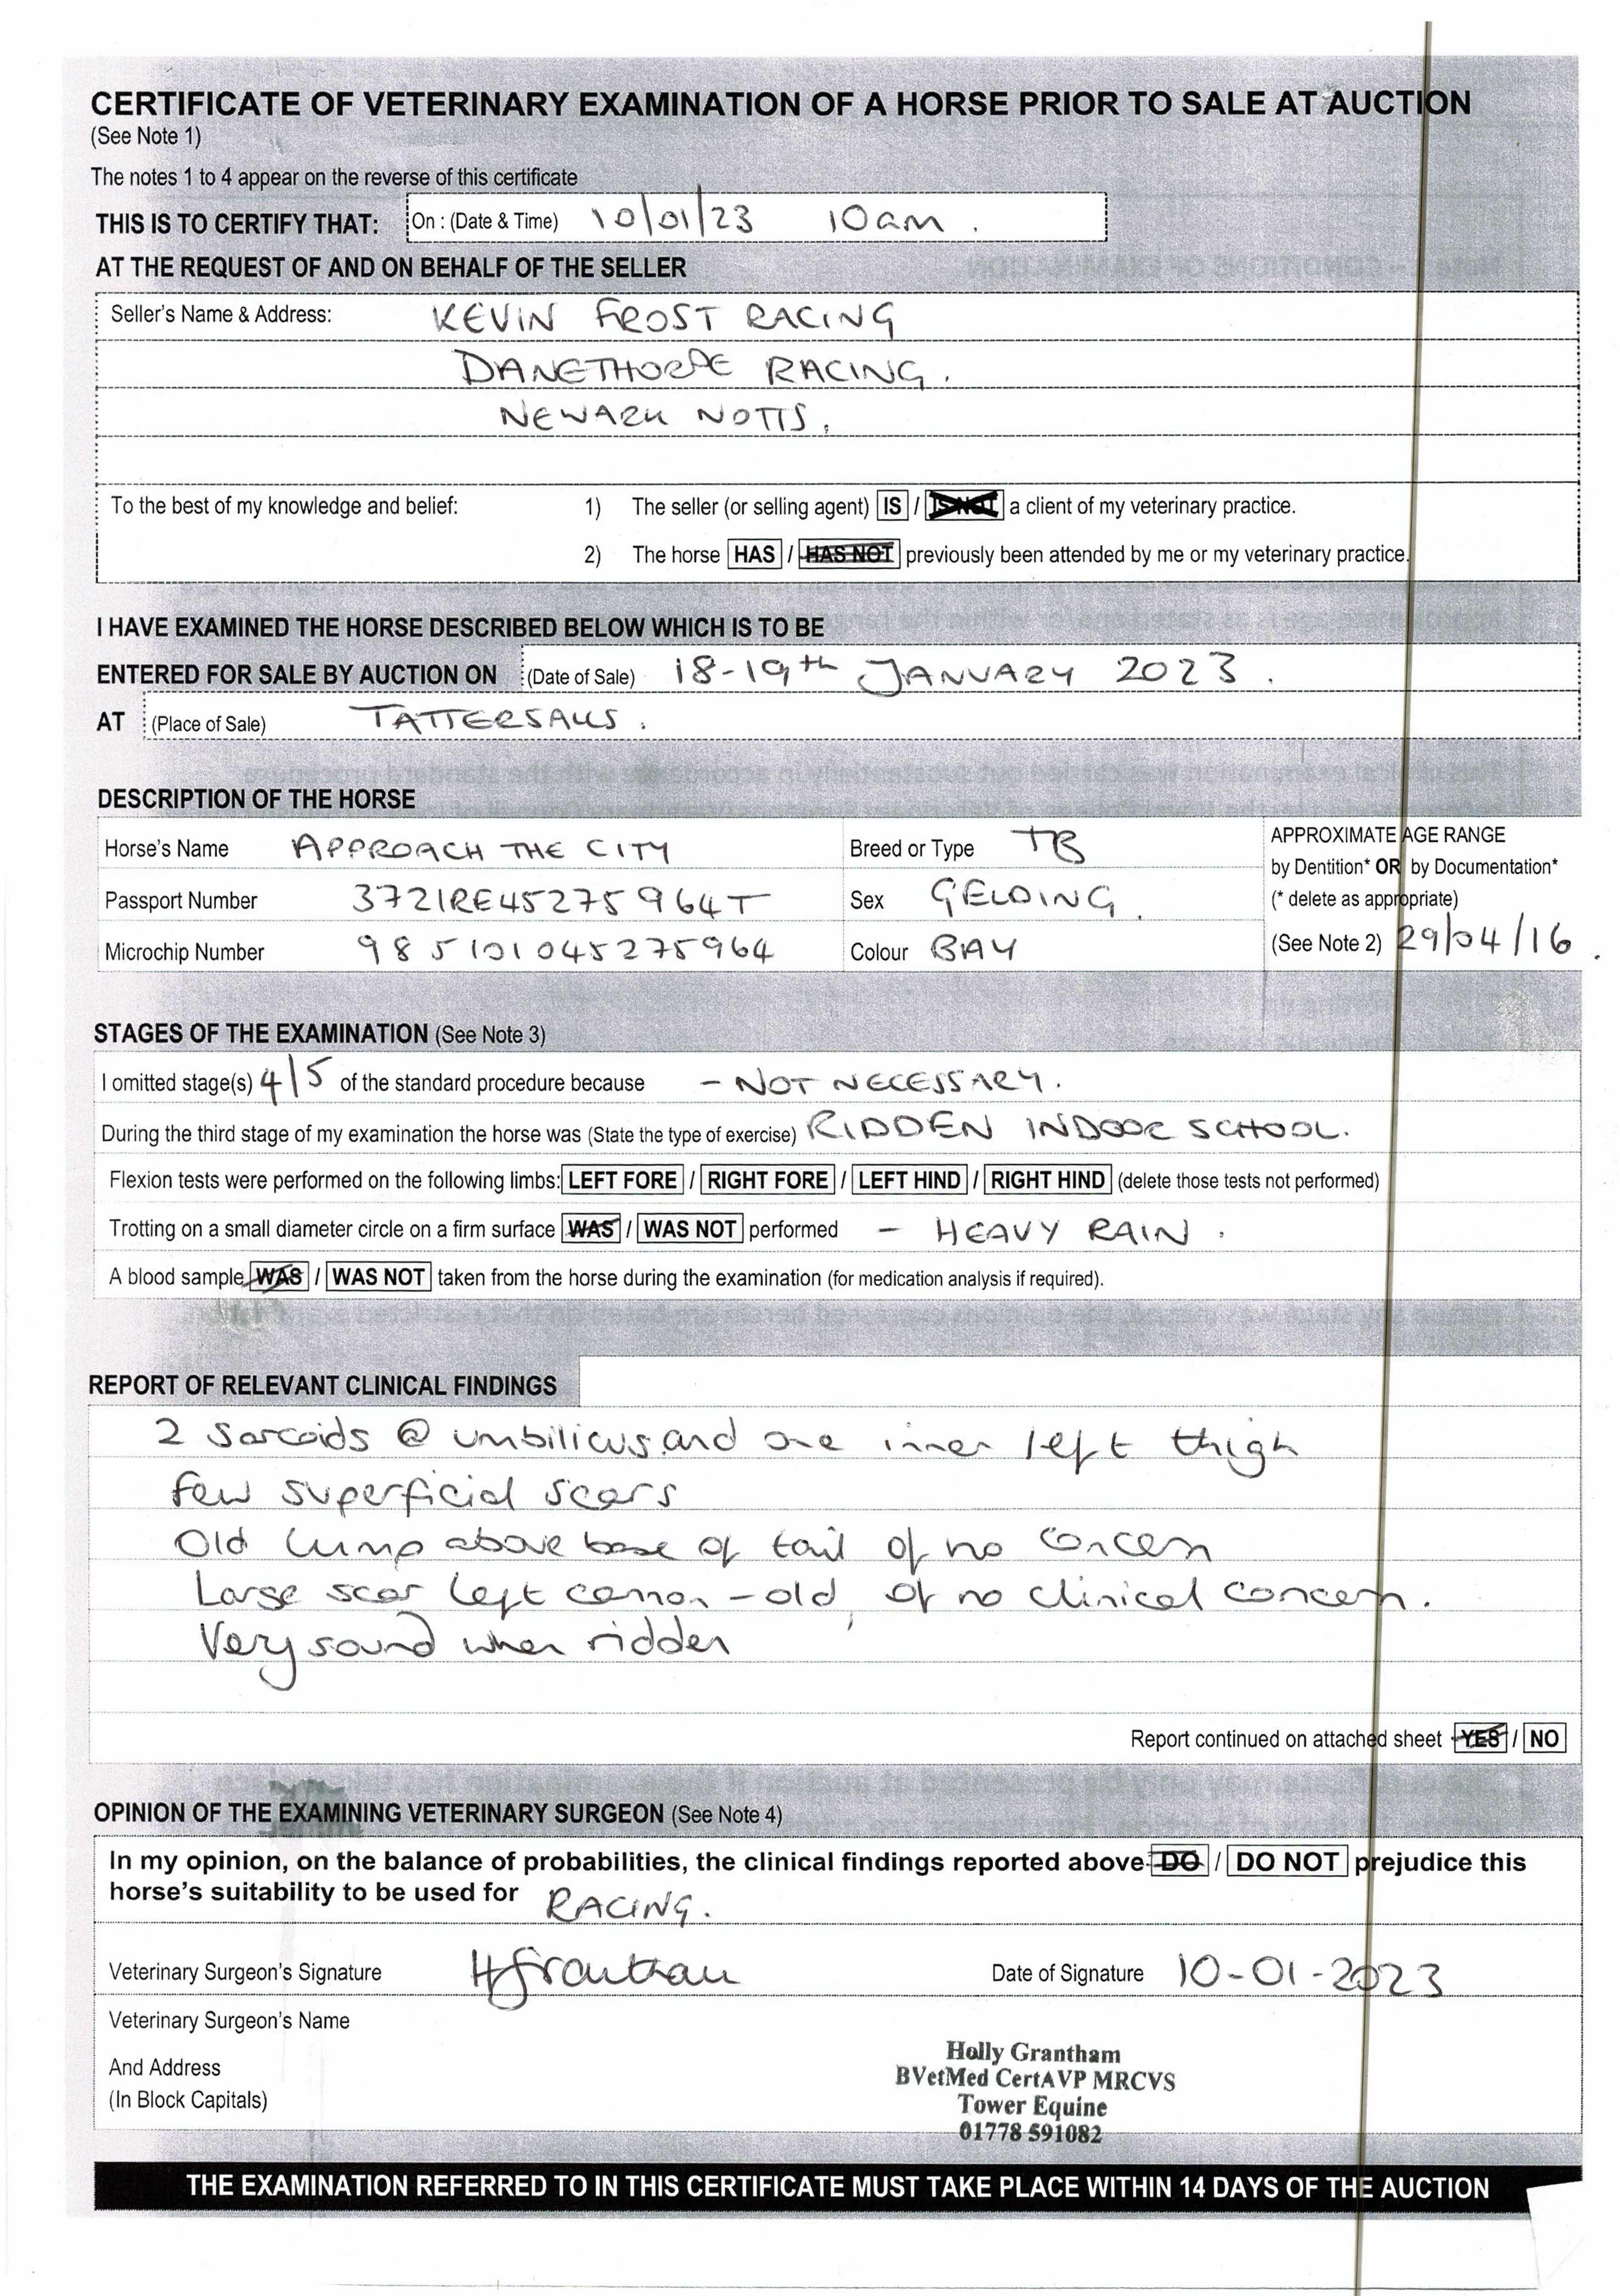 CERTIFICATE OF VETERINARY EXAMINATION OF A HORSE PRIOR TO SALE AT AUCTION
(See Note 1)
The notes 1 to 4 appear on the reverse of this certificate
THIS IS TO CERTIFY THAT: On : (Date & Time) 10/01/23 10am.
AT THE REQUEST OF AND ON BEHALF OF THE SELLER
Seller's Name & Address: KEVIN FROST RACING
DANETHORPE RACING.
NEWARK NOTTS,
To the best of my knowledge and belief: 1) The seller (or selling agent) IS / IS NOT a client of my veterinary practice.
2) The horse HAS / HAS NOT previously been attended by me or my veterinary practice.
I HAVE EXAMINED THE HORSE DESCRIBED BELOW WHICH IS TO BE
ENTERED FOR SALE BY AUCTION ON (Date of Sale) 18-19th JANUARY 2023.
AT (Place of Sale) TATTERSALLS.
DESCRIPTION OF THE HORSE
Horse's Name APPROACH THE CITY Breed or Type TB APPROXIMATE AGE RANGE
by Dentition* OR by Documentation*
Passport Number 372IRE45275964T Sex GELDING. (* delete as appropriate)
Microchip Number 985101045275964 Colour BAY (See Note 2) 29/04/16.
STAGES OF THE EXAMINATION (See Note 3)
I omitted stage(s) 4/5 of the standard procedure because - NOT NECESSARY.
During the third stage of my examination the horse was (State the type of exercise) RIDDEN INDOOR SCHOOL.
Flexion tests were performed on the following limbs: LEFT FORE / RIGHT FORE / LEFT HIND / RIGHT HIND (delete those tests not performed)
Trotting on a small diameter circle on a firm surface WAS / WAS NOT performed - HEAVY RAIN.
A blood sample WAS / WAS NOT taken from the horse during the examination (for medication analysis if required).
REPORT OF RELEVANT CLINICAL FINDINGS
2 Sarcoids @ umbilicus and one inner left thigh
Few superficial scars
Old lump above base of tail of no concern
Large scar left cannon - old, of no clinical concern.
Very sound when ridden
Report continued on attached sheet YES / NO
OPINION OF THE EXAMINING VETERINARY SURGEON (See Note 4)
In my opinion, on the balance of probabilities, the clinical findings reported above DO / DO NOT prejudice this
horse's suitability to be used for RACING.
Veterinary Surgeon's Signature HGrantham Date of Signature 10-01-2023
Veterinary Surgeon's Name
And Address
(In Block Capitals)
Holly Grantham
BVetMed CertAVP MRCVS
Tower Equine
01778 591082
THE EXAMINATION REFERRED TO IN THIS CERTIFICATE MUST TAKE PLACE WITHIN 14 DAYS OF THE AUCTION